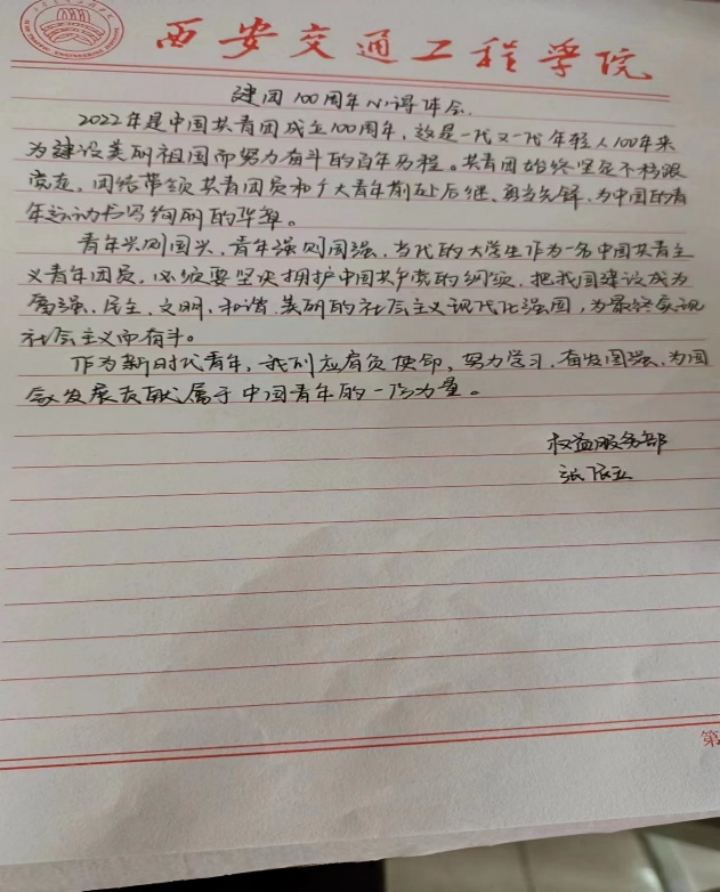 西安交通工程学院
建团100周年心得体会
2022年是中国共青团成立100周年，这是一代又一代年轻人100年来
为建设美丽祖国而努力奋斗的百年历程。共青团始终坚定不移跟
党走，团结带领共青团员和广大青年前赴后继、勇当先锋，为中国的青
年运动书写绚丽的华章。
青年兴则国兴，青年强则国强，当代的大学生作为一名中国共青主
义青年团员，必须要坚决拥护中国共产党的纲领，把我国建设成为
富强、民主、文明、和谐、美丽的社会主义现代化强国，为最终实现
社会主义而奋斗。
作为新时代青年，我们应肩负使命，努力学习，奋发图强，为国
家发展贡献属于中国青年的一份力量。
权益服务部
张
第